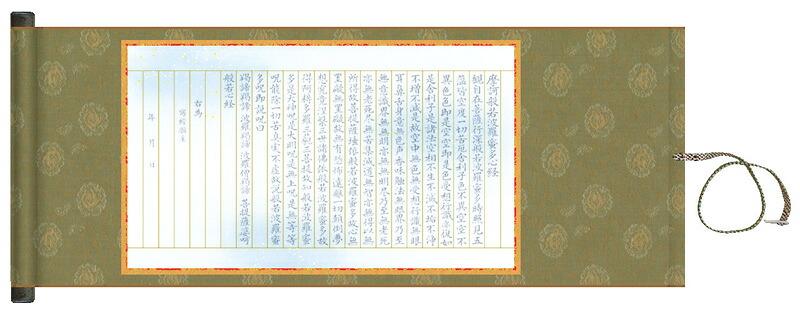 摩訶般若波羅蜜多心経
観自在菩薩行深般若波羅蜜多時照見五
蘊皆空度一切苦厄舎利子色不異空空不
異色色即是空空即是色受想行識亦復如
是舎利子是諸法空相不生不滅不垢不浄
不増不減是故空中無色無受想行識無眼
耳鼻舌身意無色声香味触法無眼界乃至
無意識界無無明亦無無明尽乃至無老死
亦無老死尽無苦集滅道無智亦無得以無
所得故菩提薩埵依般若波羅蜜多故心無
罣礙無罣礙故無有恐怖遠離一切顛倒夢
想究竟涅槃三世諸佛依般若波羅蜜多故
得阿耨多羅三藐三菩提故知般若波羅蜜
多是大神呪是大明呪是無上呪是無等等
呪能除一切苦真実不虚故説般若波羅蜜
多呪即説呪曰
羯諦羯諦 波羅羯諦 波羅僧羯諦 菩提薩婆呵
般若心経
右為
願主
年 月 日